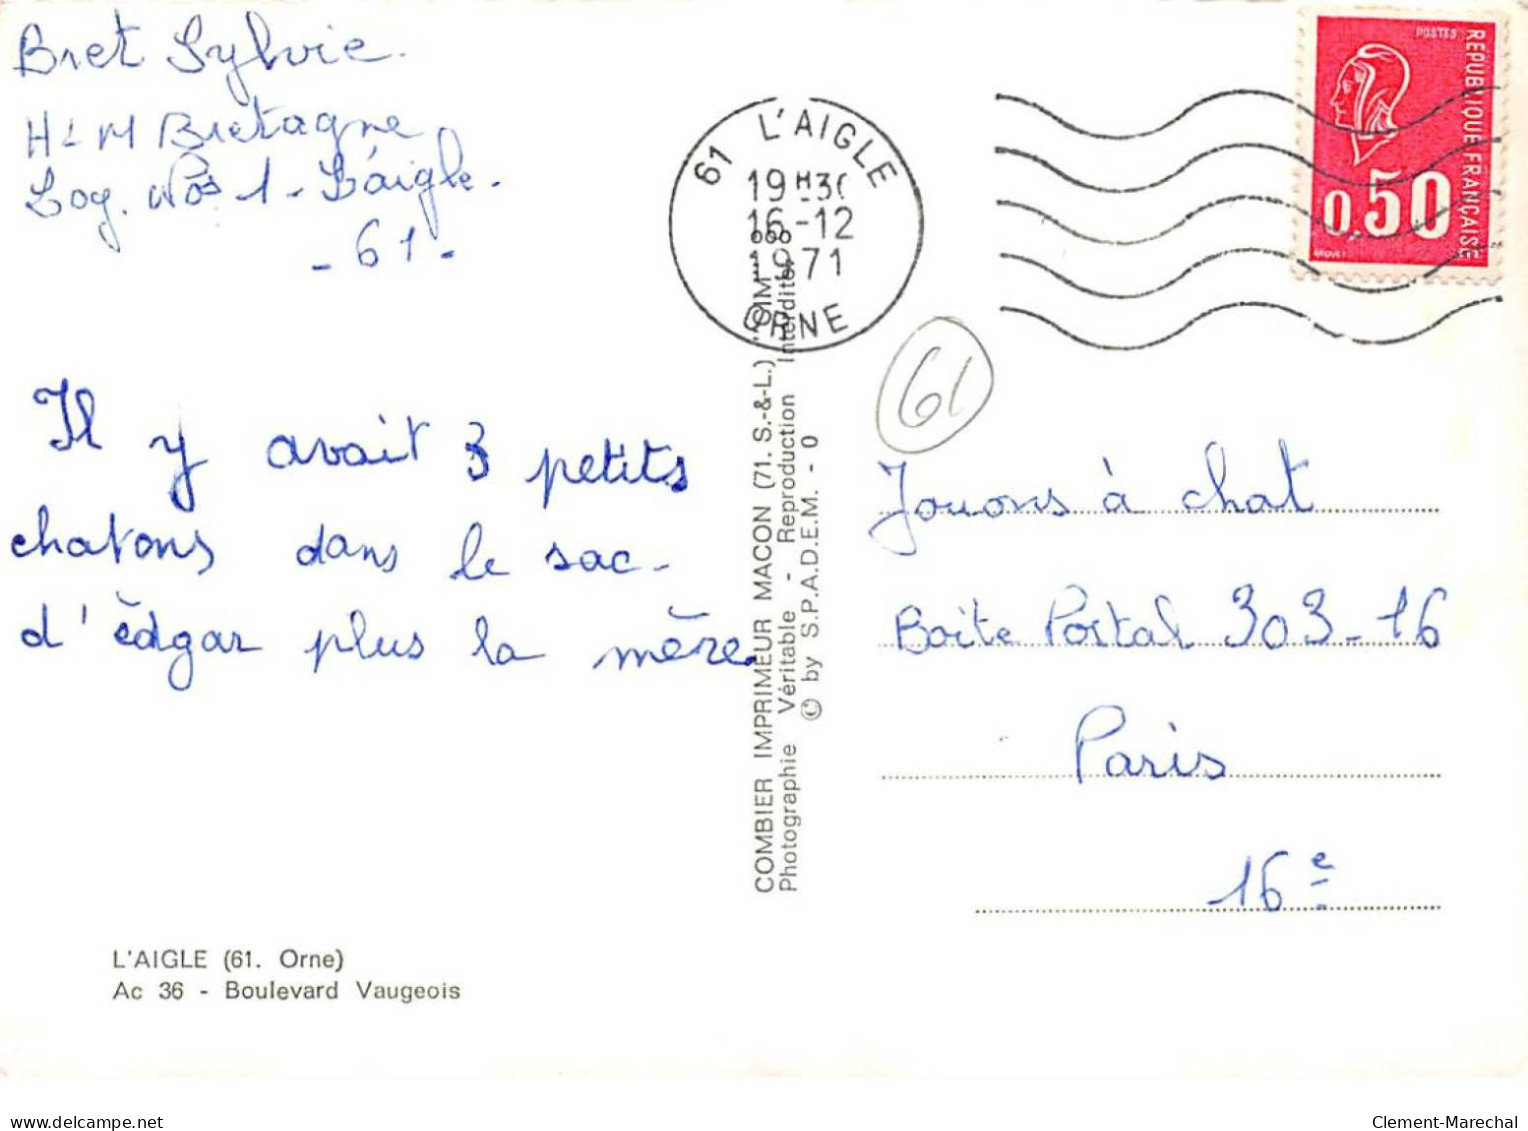 Bret Sylvie.
HLM Bretagne
Log. Nos 1 - L'aigle.
- 61 -
Il y avait 3 petits
chatons dans le sac
d'èdgar plus la mère
L'AIGLE (61. Orne)
Ac 36 - Boulevard Vaugeois
COMBIER IMPRIMEUR MACON (71. S.-&-L.) "CIM"
Photographie Véritable - Reproduction Interdite
© by S.P.A.D.E.M. - 0
61 L'AIGLE
19H30
16-12
1971
ORNE
POSTES
REPUBLIQUE FRANÇAISE
0,50
61
Jouons à chat
Boite Postal 303-16
Paris
16e
delcampe.net
Clement-Marechal